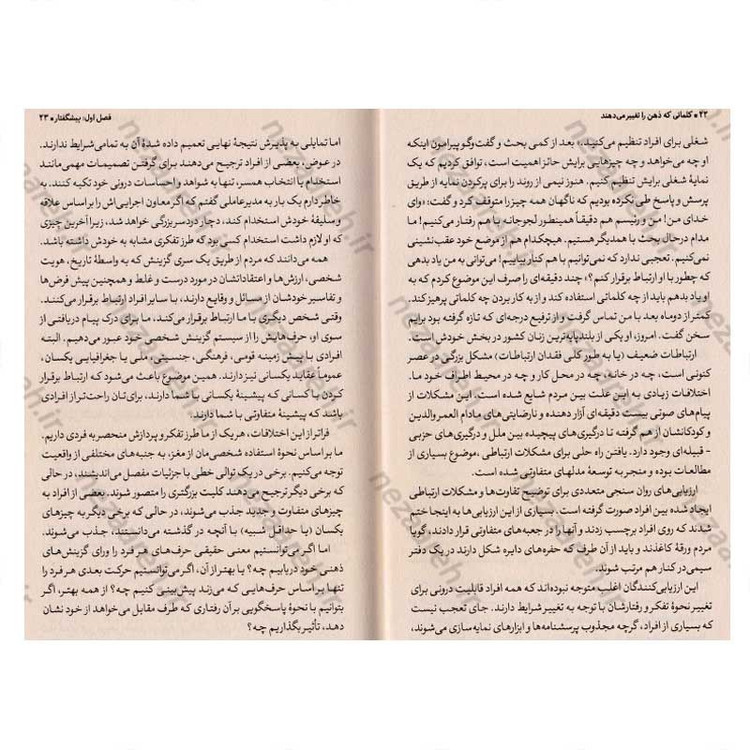 ۲۲ • کلماتی که ذهن را تغییر می‌دهند
شغلی برای افراد تنظیم می‌کنید.» بعد از کمی بحث و گفت‌وگو پیرامون اینکه
او چه می‌خواهد و چه چیزهایی برایش حائز اهمیت است، توافق کردیم که یک
نمایهٔ شغلی برایش تنظیم کنیم. هنوز نیمی از روند را برای پرکردن نمایه از طریق
پرسش و پاسخ طی نکرده بودیم که ناگهان همه چیز را متوقف کرد و گفت: «وای
خدای من! من و رئیسم هم دقیقاً همینطور لجوجانه با هم رفتار می‌کنیم! ما
مدام درحال بحث با همدیگر هستیم. هیچکدام هم از موضع خود عقب‌نشینی
نمی‌کنیم. تعجبی ندارد که نمی‌توانیم با هم کنار بیاییم! می‌توانی به من یاد بدهی
که چطور با او ارتباط برقرار کنم؟» چند دقیقه‌ای را صرف این موضوع کردم که به
او یاد بدهم باید از چه کلماتی استفاده کند و از به کار بردن چه کلماتی پرهیز کند.
کمتر از دوماه بعد با من تماس گرفت و از ترفیع درجه‌ای که تازه گرفته بود برایم
سخن گفت. امروز، او یکی از بلندپایه‌ترین زنان کشور در بخش خودش است.
ارتباطات ضعیف (یا به طور کلی فقدان ارتباطات) مشکل بزرگی در عصر
کنونی است، چه در خانه، چه در محل کار و چه در محیط اطراف خود ما.
اختلافات زیادی به این علت بین مردم شایع شده است. این مشکلات از
پیام‌های صوتی بیست دقیقه‌ای آزار دهنده و نارضایتی‌های مادام العمر والدین
و کودکانشان از هم گرفته تا درگیری‌های پیچیده بین ملل و درگیری‌های حزبی
- قبیله‌ای وجود دارد. یافتن راه حلی برای مشکلات ارتباطی، موضوع بسیاری از
مطالعات بوده و منجر به توسعهٔ مدلهای متفاوتی شده است.
ارزیابی‌های روان سنجی متعددی برای توضیح تفاوت‌ها و مشکلات ارتباطی
ایجاد شده بین افراد صورت گرفته است. بسیاری از این ارزیابی‌ها به اینجا ختم
شدند که روی افراد برچسب زدند و آنها را در جعبه‌های متفاوتی قرار دادند، گویا
مردم ورقهٔ کاغذند و باید از آن طرف که حفره‌های دایره شکل دارند در یک دفتر
سیمی در کنار هم مرتب شوند.
این ارزیابی‌کنندگان اغلب متوجه نبوده‌اند که همه افراد قابلیت درونی برای
تغییر نحوهٔ تفکر و رفتارشان با توجه به تغییر شرایط دارند. جای تعجب نیست
که بسیاری از افراد، گرچه مجذوب پرسشنامه‌ها و ابزارهای نمایه‌سازی می‌شوند،
فصل اول: پیشگفتار • ۲۳
اما تمایلی به پذیرش نتیجهٔ نهایی تعمیم داده شدهٔ آن به تمامی شرایط ندارند.
در عوض، بعضی از افراد ترجیح می‌دهند برای گرفتن تصمیمات مهمی مانند
استخدام یا انتخاب همسر، تنها به شواهد و احساسات درونی خود تکیه کنند. به
خاطر دارم یک بار به مدیرعاملی گفتم که اگر معاون اجرایی‌اش را براساس علاقه
و سلیقهٔ خودش استخدام کند، دچار دردسر بزرگی خواهد شد، زیرا آخرین چیزی
که او لازم داشت استخدام کسی بود که طرز تفکری مشابه به خودش داشته باشد.
همه می‌دانند که مردم از طریق یک سری گزینش که به واسطهٔ تاریخ، هویت
شخصی، ارزش‌ها و اعتقاداتشان در مورد درست و غلط و همچنین پیش فرض‌ها
و تفاسیر خودشان از مسائل و وقایع دارند، با سایر افراد ارتباط برقرار می‌کنند.
وقتی شخص دیگری با ما ارتباط برقرار می‌کند، ما برای درک پیام دریافتی از
سوی او، حرف‌هایش را از سیستم گزینش شخصی خود عبور می‌دهیم. البته
افرادی با پیش زمینه قومی، فرهنگی، جنسیتی، ملی یا جغرافیایی یکسان،
عموماً عقاید یکسانی نیز دارند. همین موضوع باعث می‌شود که ارتباط برقرار
کردن با کسانی که پیشینهٔ یکسانی با شما دارند، برای‌تان راحت‌تر از افرادی
باشد که پیشینهٔ متفاوتی با شما دارند.
فراتر از این اختلافات، هر یک از ما طرز تفکر و پردازش منحصر به فردی داریم.
ما بر اساس نحوهٔ استفاده شخصی‌مان از مغز، به جنبه‌های مختلفی از واقعیت
توجه می‌کنیم. برخی در یک توالی خطی با جزئیات مفصل می‌اندیشند، در حالی
که برخی دیگر ترجیح می‌دهند کلیت بزرگتری را متصور شوند. بعضی از افراد به
چیزهای متفاوت و جدید جذب می‌شوند، در حالی که برخی دیگر به چیزهای
یکسان (یا حداقل شبیه) با آنچه در گذشته می‌دانستند، جذب می‌شوند.
اما اگر می‌توانستیم معنی حقیقی حرف‌های هر فرد را ورای گزینش‌های
ذهنی خود دریابیم چه؟ یا بهتر از آن، اگر می‌توانستیم حرکت بعدی هر فرد را
تنها بر اساس حرف‌هایی که می‌زند پیش‌بینی کنیم چه؟ از همه بهتر، اگر
بتوانیم با نحوهٔ پاسخگویی بر آن رفتاری که طرف مقابل می‌خواهد از خود نشان
دهد، تأثیر بگذاریم چه؟
nezamdeh.ir